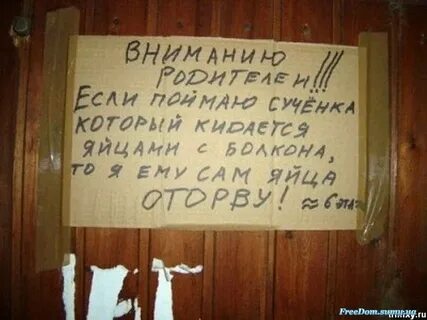 ВНИМАНИЮ
РОДИТЕЛЕЙ!!!
ЕСЛИ ПОЙМАЮ СУЧЁНКА
КОТОРЫЙ КИДАЕТСЯ
ЯЙЦАМИ С БОЛКОНА,
ТО Я ЕМУ САМ ЯЙЦА
ОТОРВУ! ≈ 6 этаж
FreeDom.sumy.ua
trinixy.ru